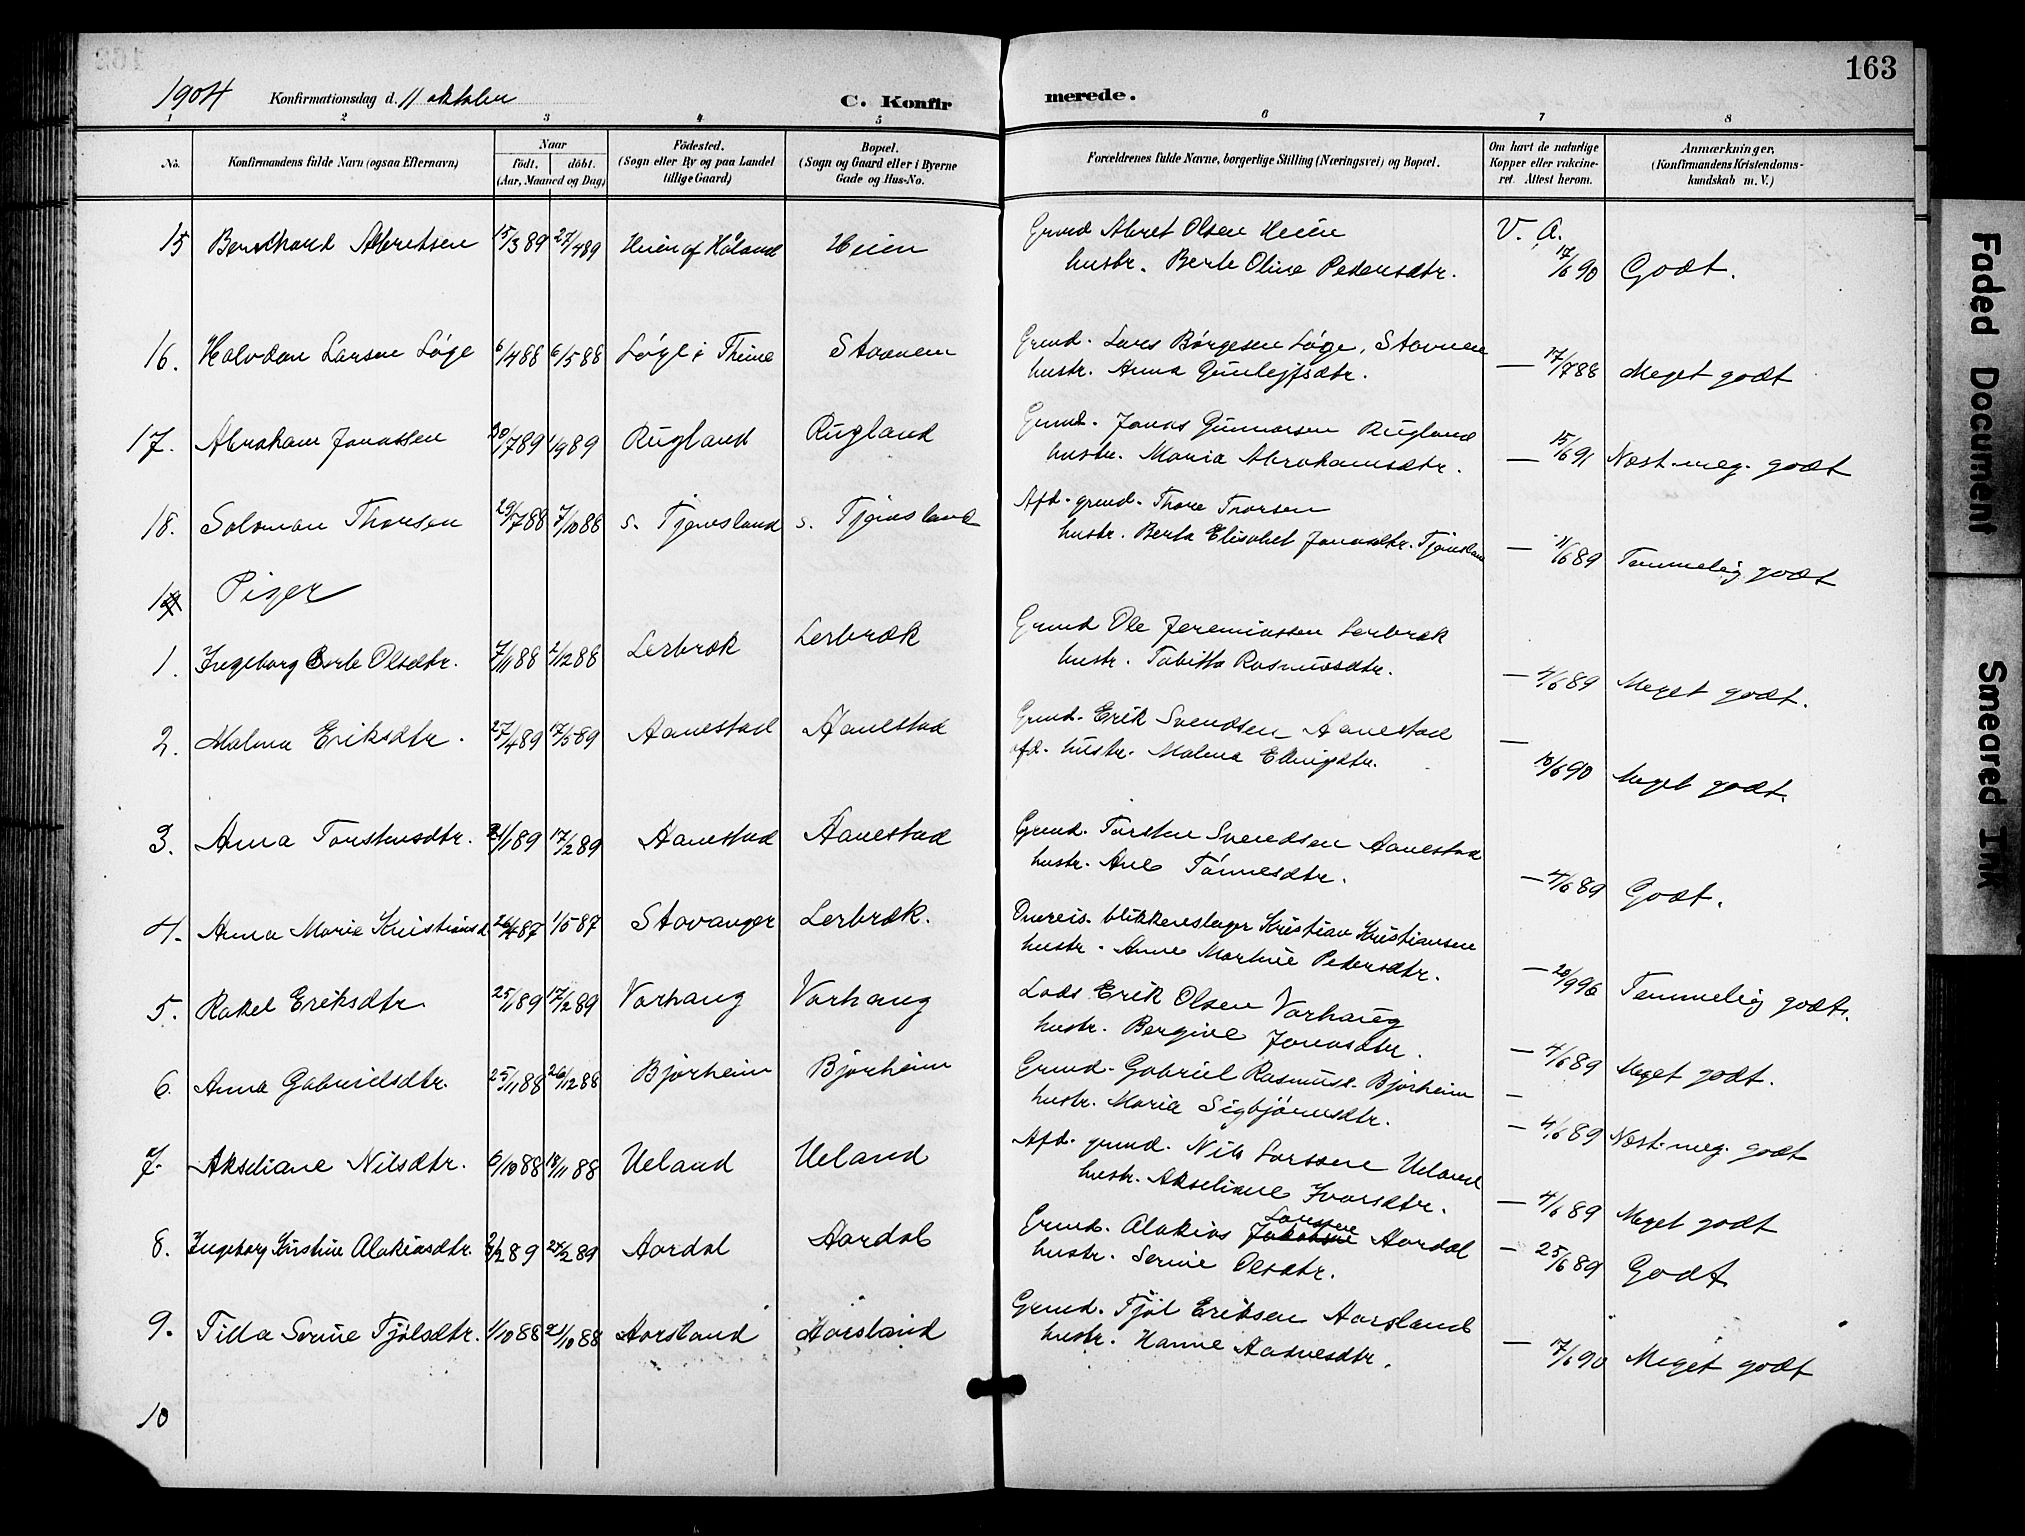 163
1904 Konfirmationsdag d. 11 oktober C. Konfirmerede.
1 2 3 4 5 6 7 8
No. Konfirmandens fulde Navn (ogsaa Efternavn) Naar født. døbt. (Aar, Maaned og Dag) Fødested. (Sogn eller By og paa Landet tillige Gaard) Bopæl. (Sogn og Gaard eller i Byerne Gade og Hus-No. Forældrenes fulde Navne, borgerlige Stilling (Næringsvei) og Bopæl. Om havt de naturlige Kopper eller vakcineret. Attest herom. Anmærkninger, (Konfirmandens Kristendomskundskab m. V.)
15 Berthard Abretsen 15/3 89 27/4 89 Heien af Håland Heien Grmd Abret Olsen Heien V. A.
hustr. Berte Oline Pedersdtr. 17/6 90 Godt.
16. Halvdan Larsen Løge 6/4 88 6/5 88 Løge i Thime Stavnem Grmd. Lars Børgesen Løge, Stavnem
hustr. Anna Gunlejfsdtr. — 17/7 88 Meget godt
17. Abraham Jonassen 30/7 89 1/9 89 Rugland Rugland Grmd. Jonas Gunnarsen Rugland
hustr. Maria Abrahamsdtr. — 15/6 91 Næst. meg. godt
18. Salomon Thorsen 29/7 88 7/10 88 s. Tjemsland s. Tjemsland Afd. grmd. Thore Thorsen
hustr. Berta Elisabet Jonasdtr. Tjemsland — 11/6 89 Temmelig godt
19 Piger
1. Ingeborg Berte Olsdtr. 7/11 88 2/12 88 Lerbræk Lerbræk Grmd Ole Jeremiassen Lerbræk
hustr. Tabitta Rasmusdtr. — 4/6 89 Meget godt.
2. Malena Eriksdtr. 27/4 89 17/5 89 Aanestad Aanestad Grmd. Erik Svendsen Aanestad —
afd. hustr. Malena Ellingsdtr. 10/6 90 Meget godt.
3. Anna Torstensdtr. 21/1 89 17/2 89 Aanestad Aanestad Grmd. Torsten Svendsen Aanestad
hustr. Ane Tønnesdtr. — 4/6 89 Godt.
4. Anna Marie Kristiansd 26/4 87 1/5 87 Stavanger Lerbræk. blikkenslager Kristian Kristiansen
hustr. Anne Martine Pedersdtr. — 20/9 96 Temmelig godt.
5. Rakel Eriksdtr 25/1 89 17/2 89 Varhaug Varhaug Lods Erik Olsen Varhaug
hustr. Bergive Jonasdtr. — 4/6 89 Meget godt.
6. Anna Gabrielsdtr. 25/11 88 26/12 88 Bjørheim Bjørheim Grmd. Gabriel Rasmuss. Bjørheim —
hustr. Maria Sigbjørnsdtr. — 4/6 89 Næst. meg. godt
7. Akseliane Nilsdtr. 6/10 88 18/11 88 Ueland Ueland Afd. grmd. Nils Larssen Ueland
hustr. Akseliane Ivarsdtr. — 4/6 89 Meget godt
8. Ingeborg Kirstine Alakiasdtr. 2/2 89 24/2 89 Aardal Aardal Grmd. Alakias Jakobsen Larssen Aardal
hustr. Serine Olsdtr. — 25/6 89 Godt
9. Tilla Serine Tjølsdtr. 1/10 88 21/10 88 Aarsland Aarsland Grmd. Tjøl Eriksen Aarsland
hustr. Hanne Aadnesdtr. — 17/6 90 Meget godt
10
Faded Document
Smeared Ink